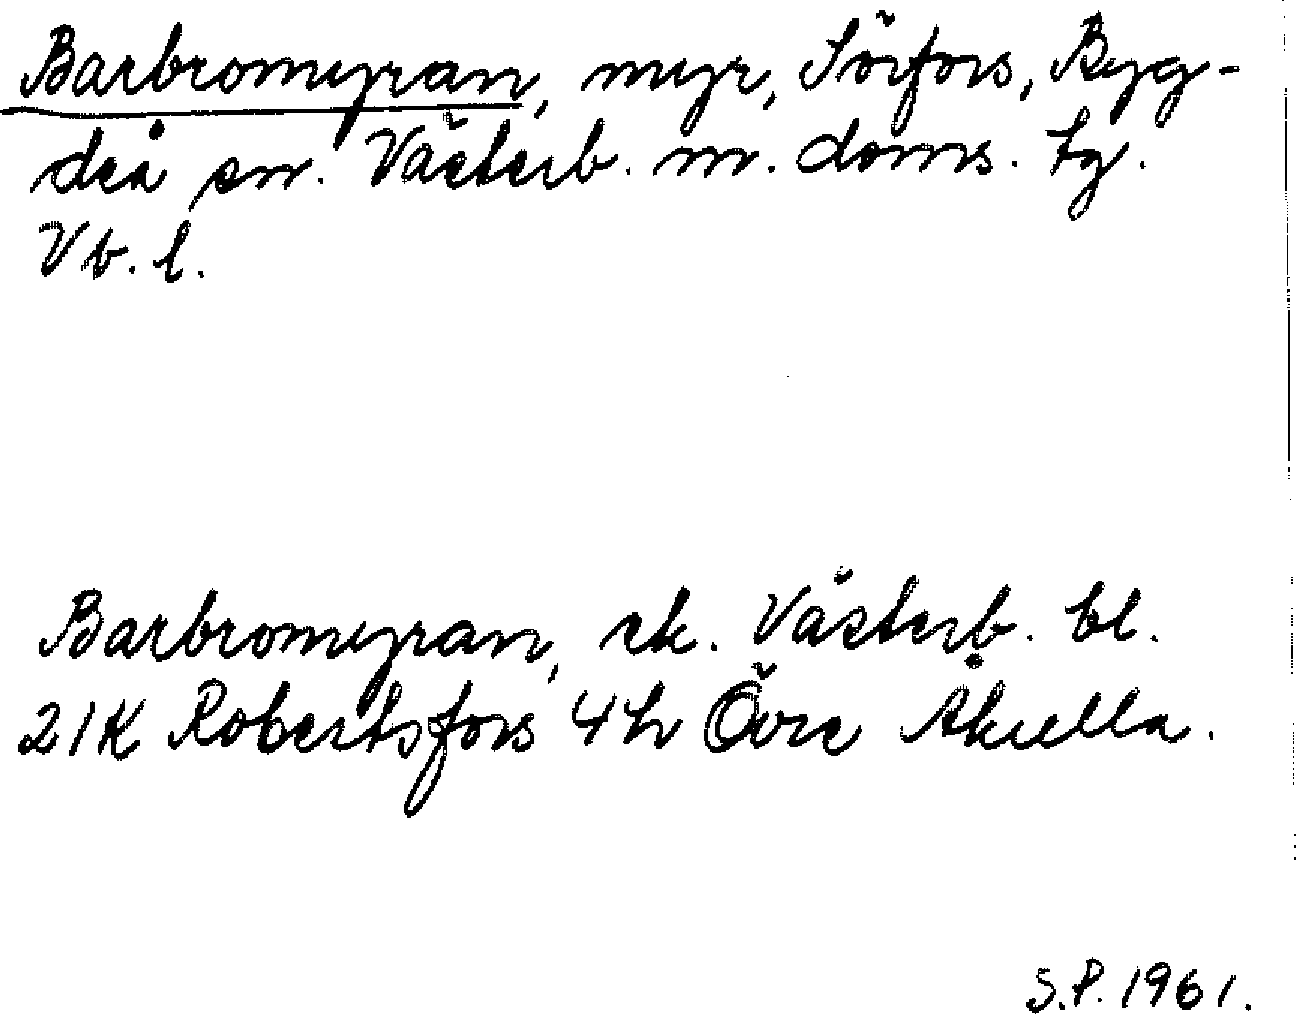 Barbromyran, myr, Sörfors, Byg-
deå sn. Västerb. m. doms. tg.
Vb. l.
Barbromyran, ek. Västerb. bl.
21K Robertsfors 4h Övre Åkulla.
S.P. 1961.